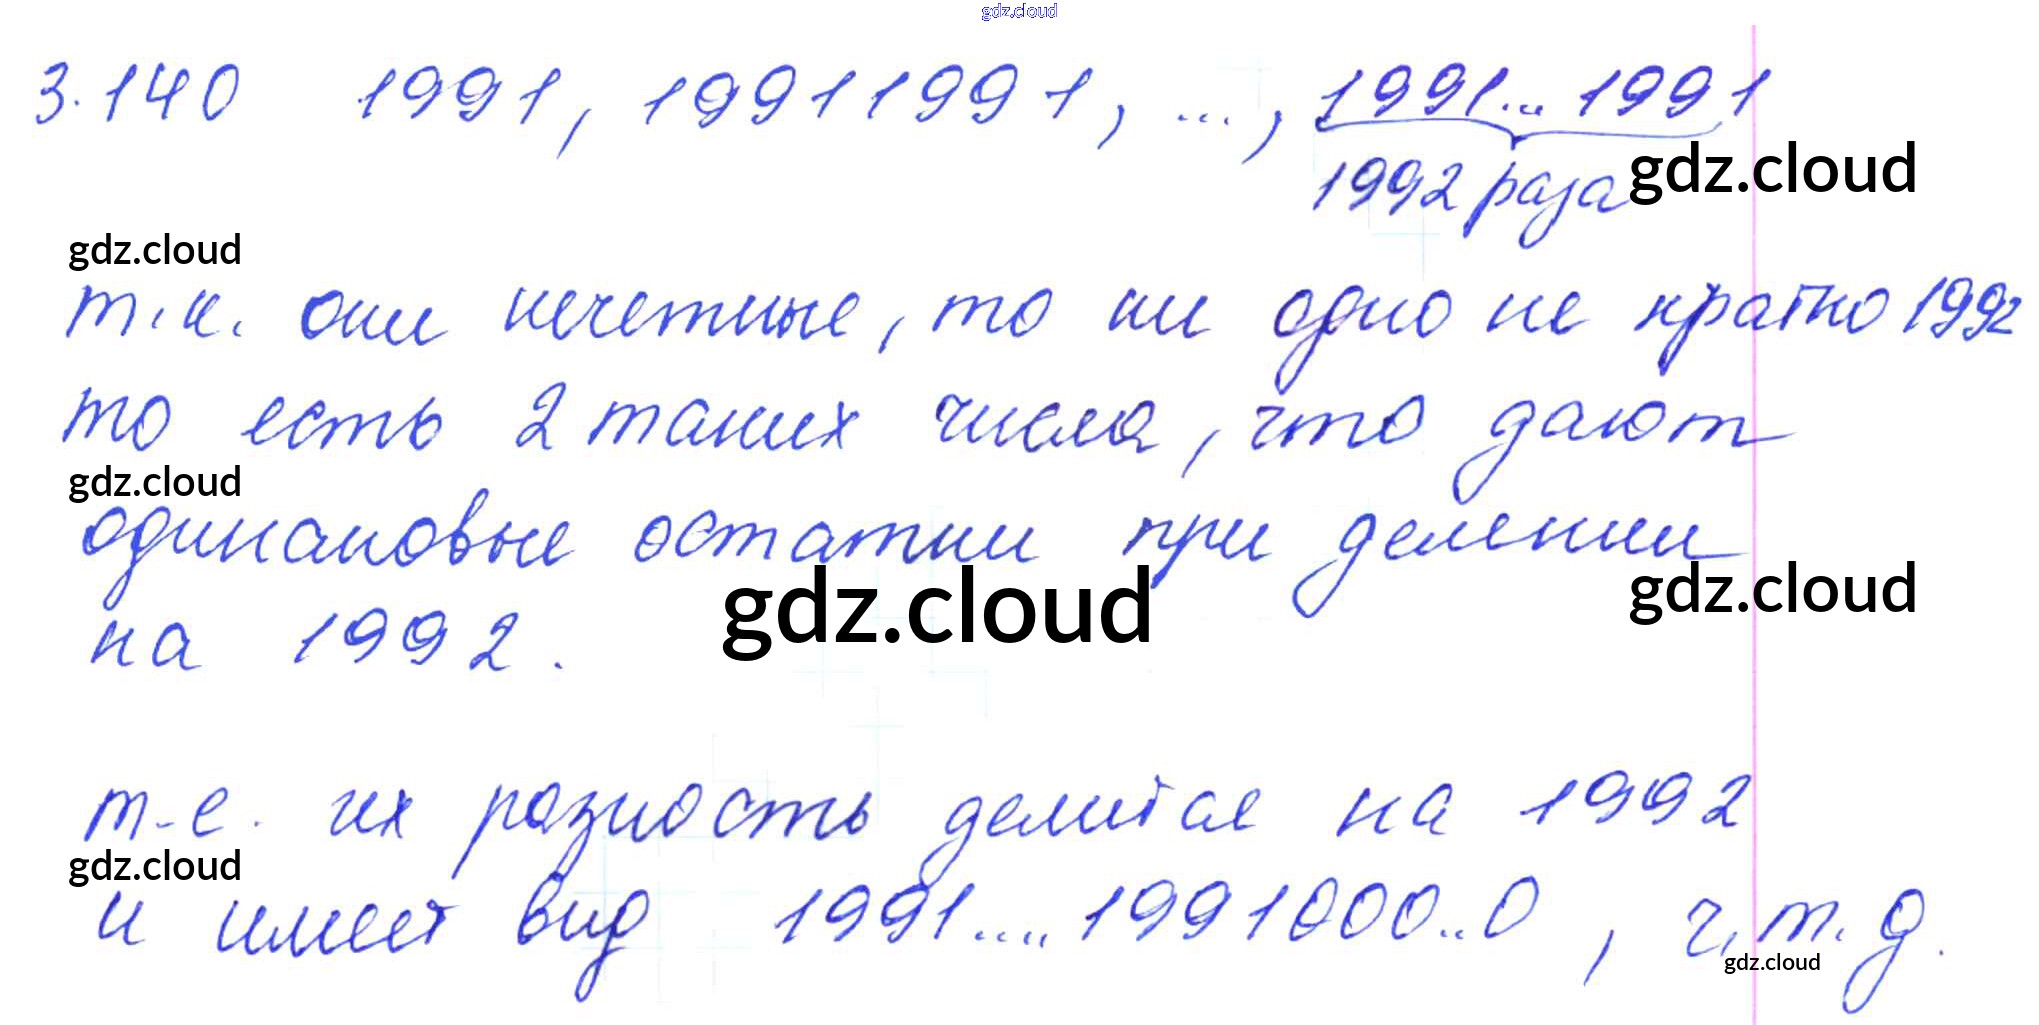 gdz.cloud
3.140 1991, 19911991, ..., 1991...1991
1992 раза
gdz.cloud
gdz.cloud
т.к. они нечетные, то ни одно не кратно 1992
то есть 2 таких числа, что дают
gdz.cloud
одинаковые остатки при делении
gdz.cloud
gdz.cloud
на 1992.
т.е. их разность делится на 1992
gdz.cloud
и имеет вид 1991....1991000..0, ч.т.д.
gdz.cloud